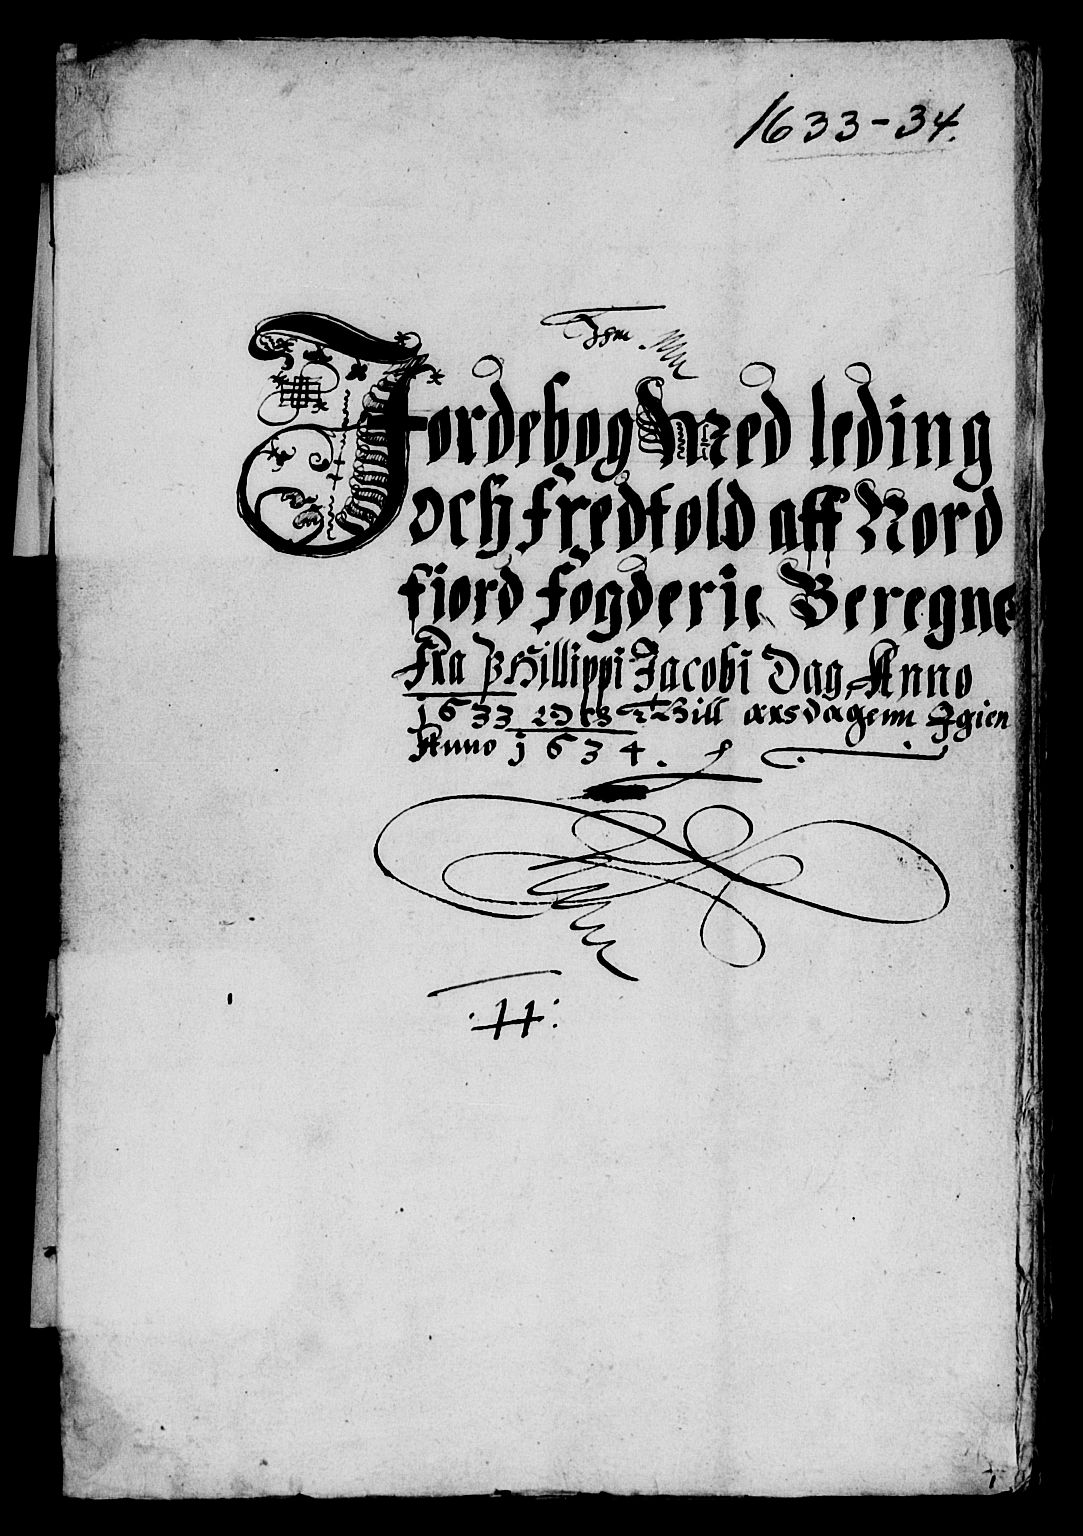 1633-34.
Jordebog Med leding
och fredtold aff Nord
fiord fogderie Beregne
Fra Phillippi Jacobi Dag Anno
1633 Och Till arsdagenn Igien
Anno 1634.